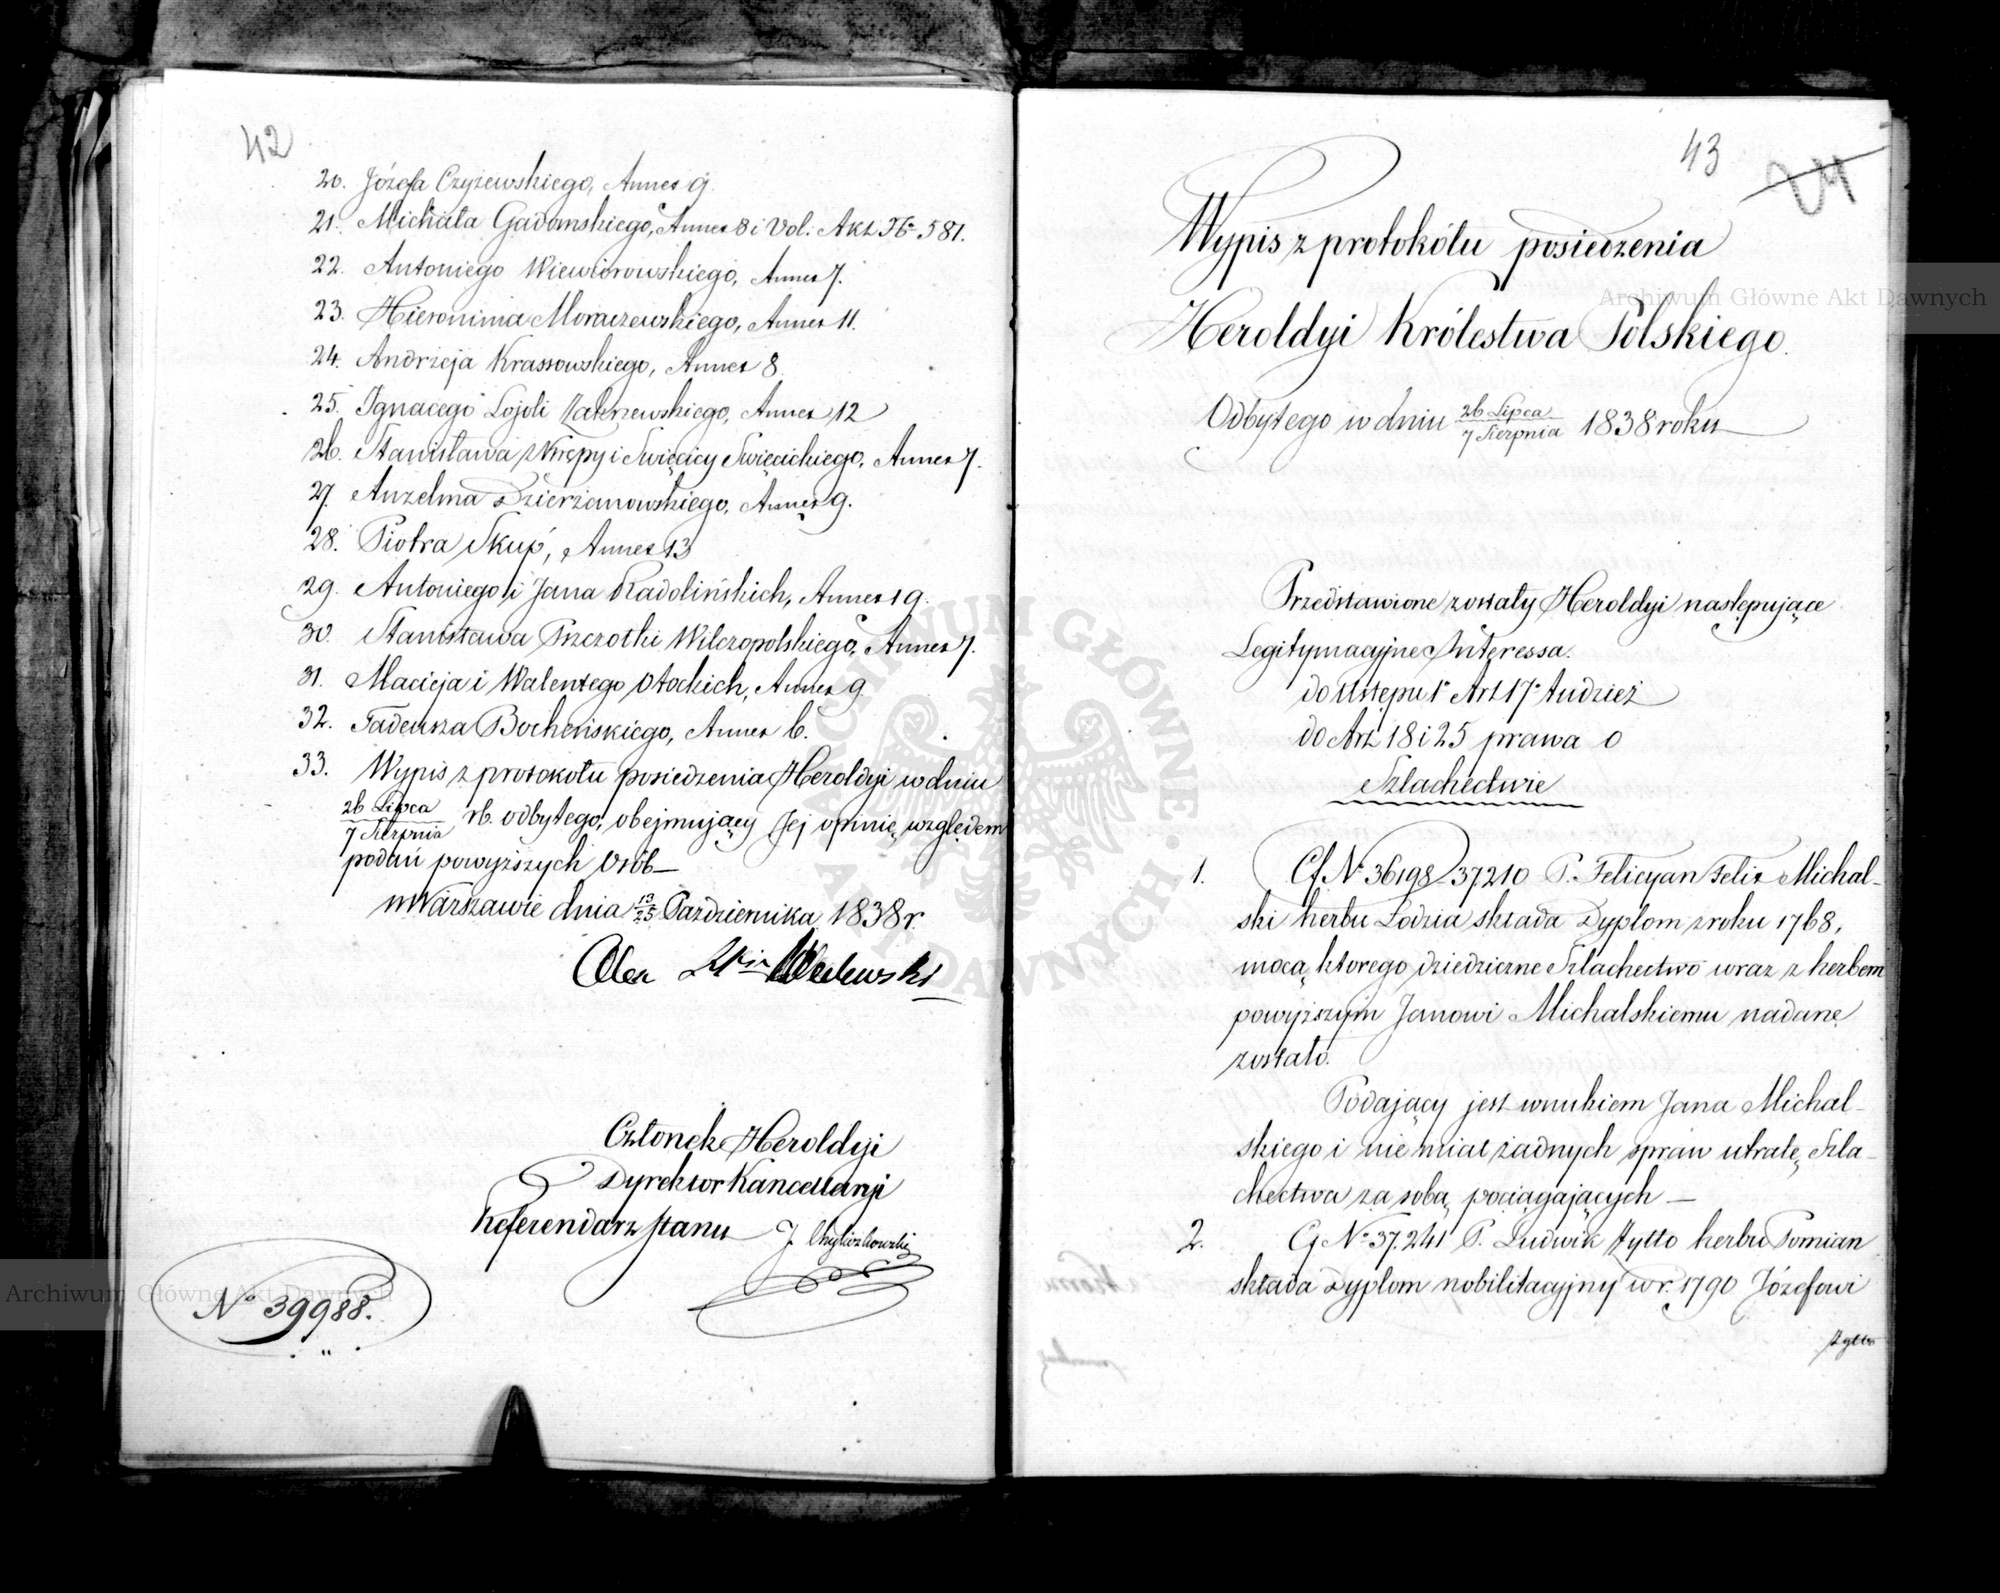 42
20. Józefa Czyżewskiego, Annex 9.
21. Michała Gadomskiego, Annex 8 i Vol: Akt No 581.
22. Antoniego Wiewiorowskiego, Annex 7.
23. Hieronima Moraczewskiego, Annex 11.
24. Andrzeja Krassowskiego, Annex 8.
25. Ignacego Lojoli Zakrzewskiego, Annex 12
26. Stanisława z Krępy i Swięcicy Swięcickiego, Annex 7.
27. Anzelma Dzierżanowskiego, Annex 9.
28. Piotra Skup, Annex 13
29. Antoniego i Jana Radolińskich, Annex 19.
30. Stanisława Pszczotki Wilczopolskiego, Annex 7.
31. Macieja i Walentego Otockich, Annex 9
32. Tadeusza Bocheńskiego, Annex 6.
33. Wypis z protokołu posiedzenia Heroldyi w dniu
26 Lipca
7 Sierpnia rb. odbytego, obejmujący Jej opinię względem
podań powyższych Osób—
w Warszawie dnia 13/25 Pazdziernika 1838 r.
Członek Heroldyi
Dyrektor Kancellaryi
Referendarz Stanu J.
No 39988.
43
Wypis z protokółu posiedzenia
Heroldyi Królestwa Polskiego.
Odbytego w dniu 26 Lipca
7 Sierpnia 1838 roku
Przedstawione zostały Heroldyi następujące
Legitymacyjne Interessa.
do Ustępu 1o Art 17o tudzież
do Art 18 i 25 prawa o
Szlachectwie
1. Cf No 36198_37210 P. Felicyan Felix Michal-
ski herbu Lodzia składa Dyplom z roku 1768,
mocą ktorego dziedziczne Szlachectwo wraz z herbem
powyższym Janowi Michalskiemu nadane
zostało.
Podający jest wnukiem Jana Michal-
skiego i nie miał żadnych spraw utratę Szla-
chectwa za sobą pociągających—
2. Cf No 37.241 P. Ludwik Zytto herbu Pomian
składa Dyplom nobilitacyjny w r. 1790 Józefowi
Zytto
Archiwum Główne Akt Dawnych
Archiwum Główne Akt Dawnych
ARCHIWUM GŁÓWNE AKT DAWNYCH